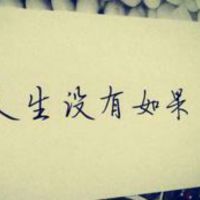 人生没有如果